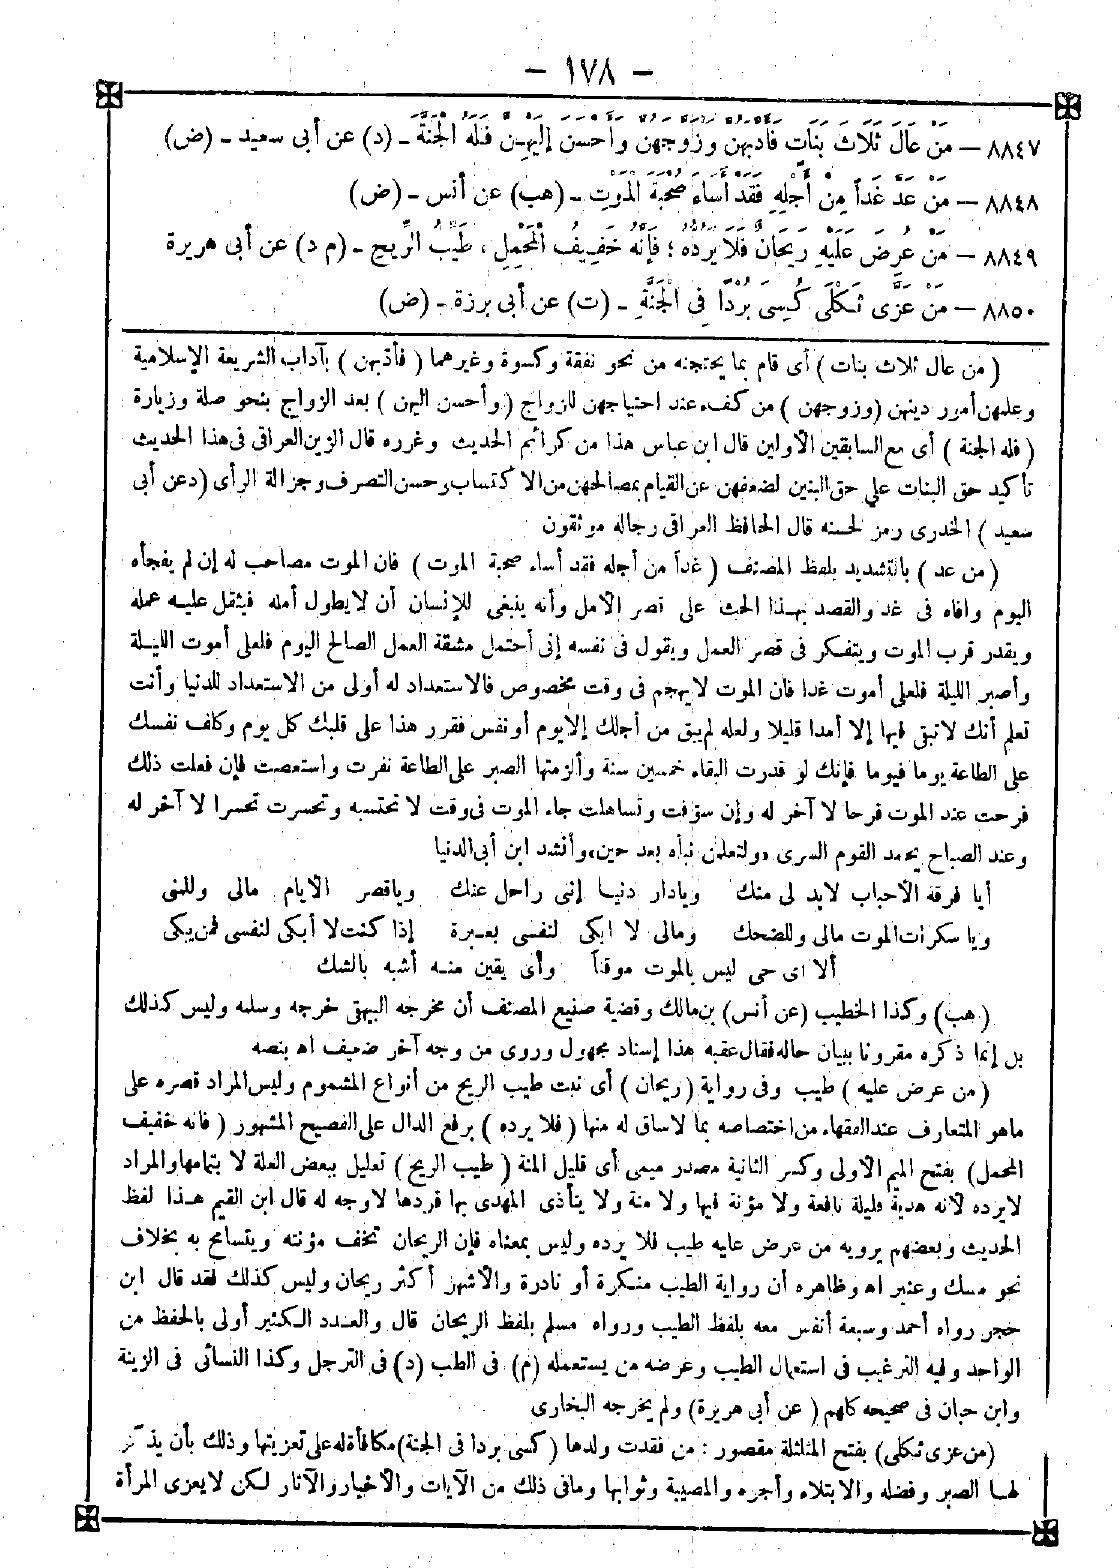 – ١٧٨ –
٨٨٤٧ – مَنْ عَالَ ثَلَاثَ بَنَاتٍ فَأَدَّبَهُنَّ وَزَوَّجَهُنَّ وَأَحْسَنَ إِلَيْهِنَّ فَلَهُ الْجَنَّةُ – (د) عن أبى سعيد – (ض)
٨٨٤٨ – مَنْ عَدَّ غَداً مِنْ أَجَلِهِ فَقَدْ أَسَاءَ صُحْبَةَ الْمَوْتِ – (هب) عن أنس – (ض)
٨٨٤٩ – مَنْ عُرِضَ عَلَيْهِ رَيْحَانٌ فَلَا يَرُدُّهُ ؛ فَإِنَّهُ خَفِيفُ الْمَحْمِلِ ، طَيِّبُ الرِّيحِ – (م د) عن أبى هريرة
٨٨٥٠ – مَنْ عَزَّى ثَكْلَى كُسِىَ بُرْدًا فِى الْجَنَّةِ – (ت) عن أبى برزة – (ض)
( من عال ثلاث بنات ) أى قام بما يحتجنه من نحو نفقة وكسوة وغيرهما ( فأدبهن ) بآداب الشريعة الإسلامية
وعلمهن أمور دينهن (وزوجهن ) من كفء عند احتياجهن للزواج ( وأحسن اليهن ) بعد الزواج بنحو صلة وزيارة
( فله الجنة ) أى مع السابقين الأولين قال ابن عباس هذا من كرائم الحديث وغرره قال الزين العراقى فى هذا الحديث
تأكيد حق البنات على حق البنين لضعفهن عن القيام بمصالحهن من الاكتساب وحسن التصرف وجزالة الرأى ( د عن أبى
سعيد ) الخدرى رمز لحسنه قال الحافظ العراقى رجاله موثقون
( من عد ) بالتشديد بلفظ المصنف ( غداً من أجله فقد أساء صحبة الموت ) فان الموت مصاحب له إن لم يفجأه
اليوم وافاه فى غد والقصد بهذا الحث على قصر الأمل وأنه ينبغى للإنسان أن لا يطول أمله فيثقل عليه عمله
ويقدر قرب الموت ويتفكر فى قصر العمل ويقول فى نفسه إنى أحتمل مشقة العمل الصالح اليوم فلعلى أموت الليلة
وأصبر الليلة فلعلى أموت غدا فان الموت لا يهجم فى وقت مخصوص فالاستعداد له أولى من الاستعداد للدنيا وأنت
تعلم أنك لا تبقى فيها إلا أمدا قليلا ولعله لم يبق من أجلك إلا يوم أو نفس فقرر هذا على قلبك كل يوم وكلف نفسك
على الطاعة يوما فيوما فإنك لو قدرت البقاء خمسين سنة وألزمتها الصبر على الطاعة نفرت واستعصت فإن فعلت ذلك
فرحت عند الموت فرحا لا آخر له وإن سوفت وتساهلت جاء الموت فى وقت لا تحتسبه وتحسرت تحسرا لا آخر له
وعند الصباح يحمد القوم السرى «ولتعلمن نبأه بعد حين» وأنشد ابن أبى الدنيا
أيا فرقة الأحباب لابد لى منك ويادار دنيا إننى راحل عنك وياقصر الأيام مالى وللمنى
ويا سكرات الموت مالى وللضحك ومالى لا ابكى لنفسى بعبرة إذا كنت لا أبكى لنفسى فمن يبكى
ألا اى حى ليس بالموت موقناً وأى يقين منه أشبه بالشك
(هب) وكذا الخطيب (عن أنس) بن مالك وقضية صنيع المصنف أن مخرجه البيهقى خرجه وسلمه وليس كذلك
بل إنما ذكره مقرونا ببيان حاله فقال عقبه هذا إسناد مجهول وروى من وجه آخر ضعيف اه بنصه
(من عرض عليه ) طيب وفى رواية (ريحان ) أى نبت طيب الريح من أنواع المشموم وليس المراد قصره على
ماهو المتعارف عند الفقهاء من اختصاصه بما لاساق له منها ( فلا يرده ) برفع الدال على الفصيح المشهور ( فانه خفيف
المحمل ) بفتح الميم الأولى وكسر الثانية مصدر ميمى أى قليل المنة ( طيب الريح ) تعليل ببعض العلة لا بتمامها والمراد
لا يرده لأنه هدية قليلة نافعة ولا مؤنة فيها ولا منة ولا يتأذى المهدى بها فردها لا وجه له قال ابن القيم هذا لفظ
الحديث وبعضهم يرويه من عرض عليه طيب فلا يرده وليس بمعناه فإن الريحان تخف مؤنته ويتسامح به بخلاف
نحو مسك وعنبر اه وظاهره أن رواية الطيب منكرة أو نادرة والأشهر أكثر ريحان وليس كذلك فقد قال ابن
حجر رواه أحمد وسبعة أنفس معه بلفظ الطيب ورواه مسلم بلفظ الريحان قال والعدد الكثير أولى بالحفظ من
الواحد وفيه الترغيب فى استعمال الطيب وعرضه من يستعمله (م) فى الطب (د) فى الترجل وكذا النسائى فى الزينة
وابن حبان فى صحيحه كلهم ( عن أبى هريرة) ولم يخرجه البخارى
(من عزى ثكلى) بفتح المثلثة مقصور : من فقدت ولدها (كسى بردا فى الجنة) مكافأة له على تعزيتها وذلك بأن يذكر
لها الصبر وفضله والابتلاء وأجره والمصيبة وثوابها ومافى ذلك من الآيات والأخبار والآثار لكن لا يعزى المرأة